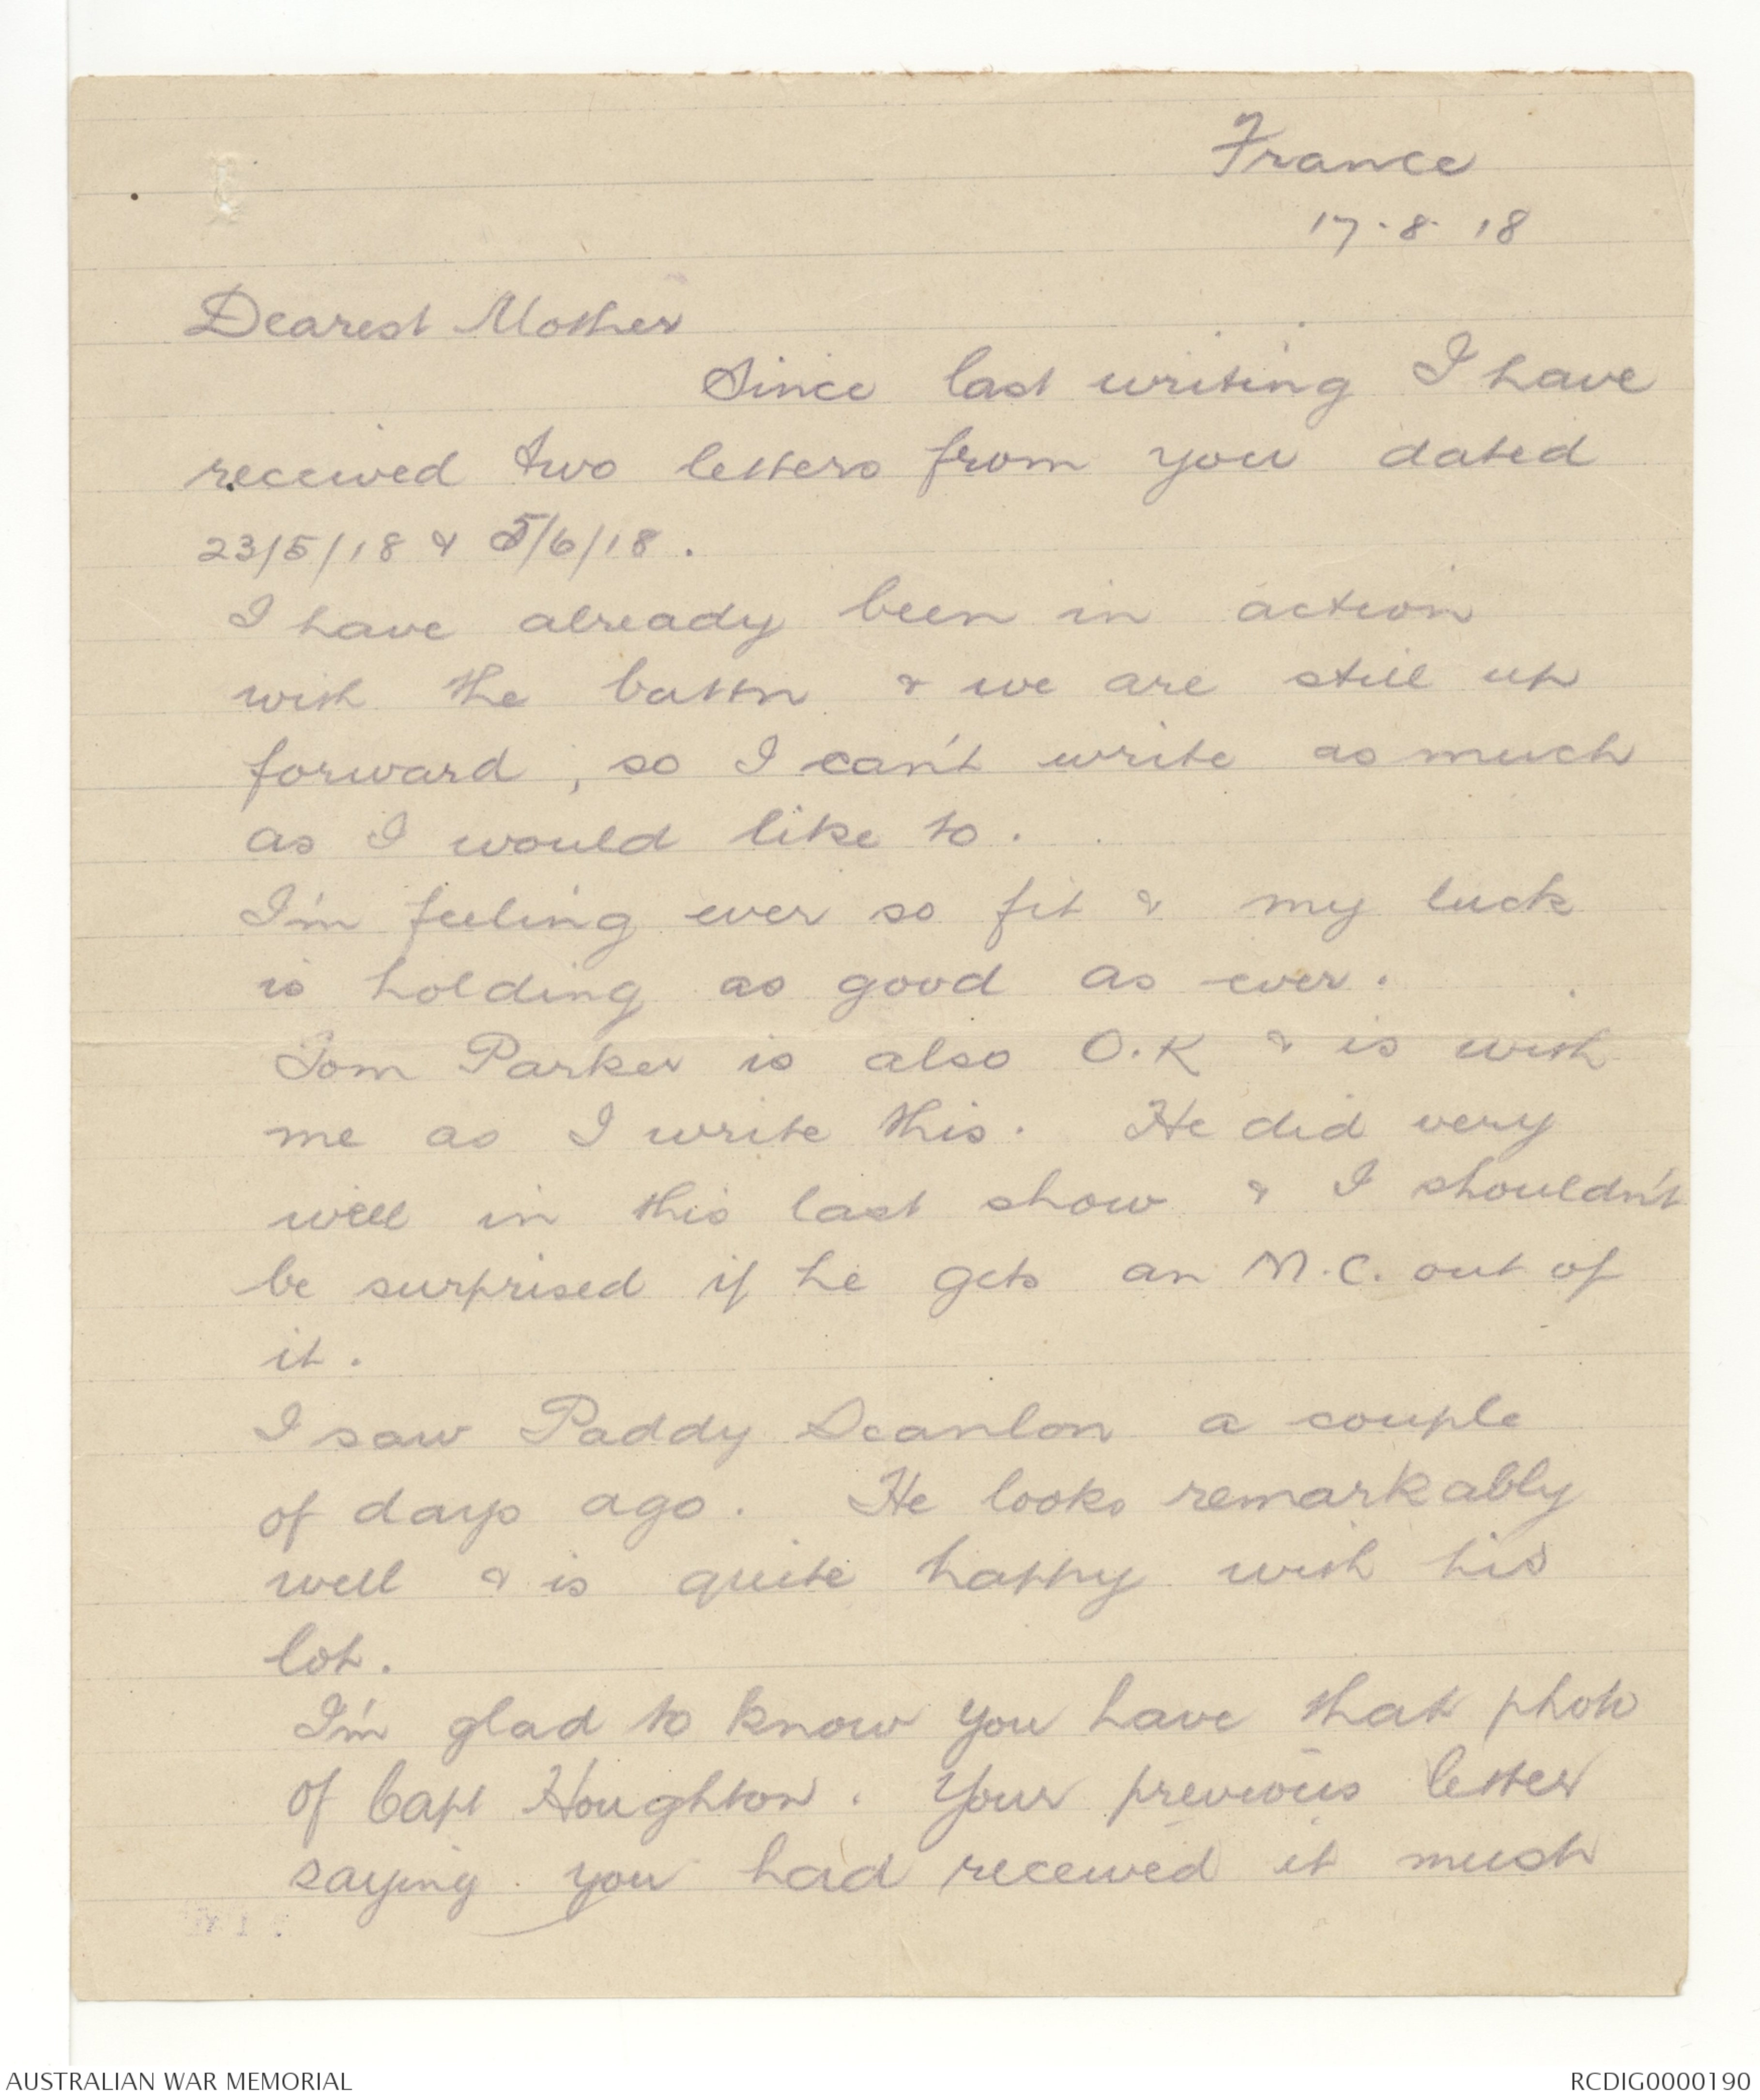 France
17.8.18
Dearest Mother
Since last writing I have
received two letters from you dated
23/5/18 & 5/6/18.
I have already been in action
with the battn & we are still up
forward, so I can't write as much
as I would like to.
I'm feeling ever so fit & my luck
is holding as good as ever.
Tom Parker is also O.K & is with
me as I write this. He did very
well in this last show & I shouldn't
be surprised if he gets an M.C. out of
it.
I saw Paddy Scanlon a couple
of days ago. He looks remarkably
well & is quite happy with his
lot.
I'm glad to know you have that photo
of Capt Houghton. Your previous letter
saying you had received it must
AUSTRALIAN WAR MEMORIAL
RCDIG0000190